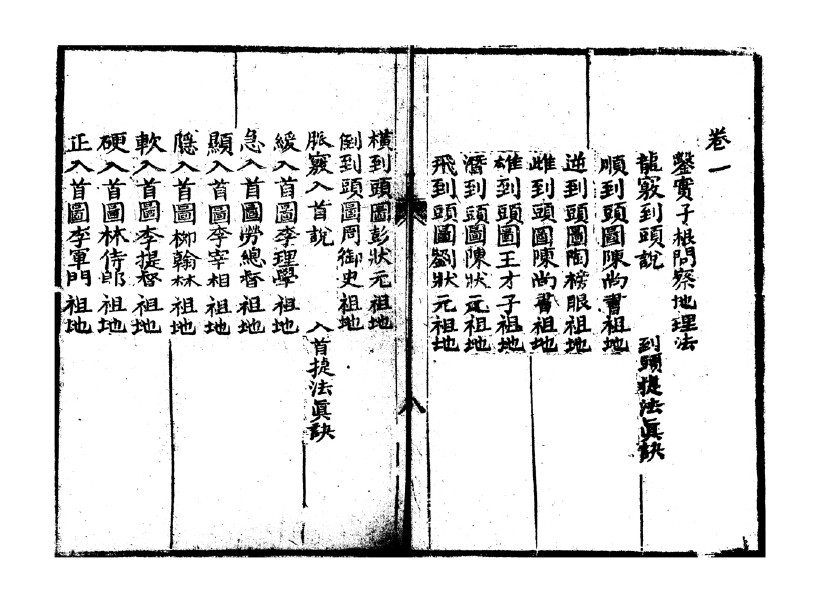 卷一
鑒賞子根問察地理法
龍竅到頭說 到頭捷法眞訣
順到頭圖陳尚書祖地
逆到頭圖陶榜眼祖地
雌到頭圖陳尚書祖地
雄到頭圖王才子祖地
潛到頭圖陳狀元祖地
飛到頭圖劉狀元祖地
橫到頭圖彭狀元祖地
倒到頭圖周御史祖地
脈竅入首說 入首捷法眞訣
緩入首圖李理學祖地
急入首圖勞總督祖地
顯入首圖李宰相祖地
隱入首圖柳翰林祖地
軟入首圖李提督祖地
硬入首圖林侍郎祖地
正入首圖李軍門祖地
八